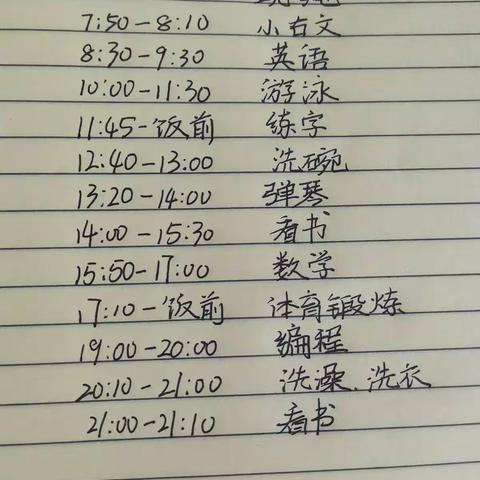 7:50-8:10 小古文
8:30-9:30 英语
10:00-11:30 游泳
11:45-饭前 练字
12:40-13:00 洗碗
13:20-14:00 弹琴
14:00-15:30 看书
15:50-17:00 数学
17:10-饭前 体育锻炼
19:00-20:00 编程
20:10-21:00 洗澡、洗衣
21:00-21:10 看书